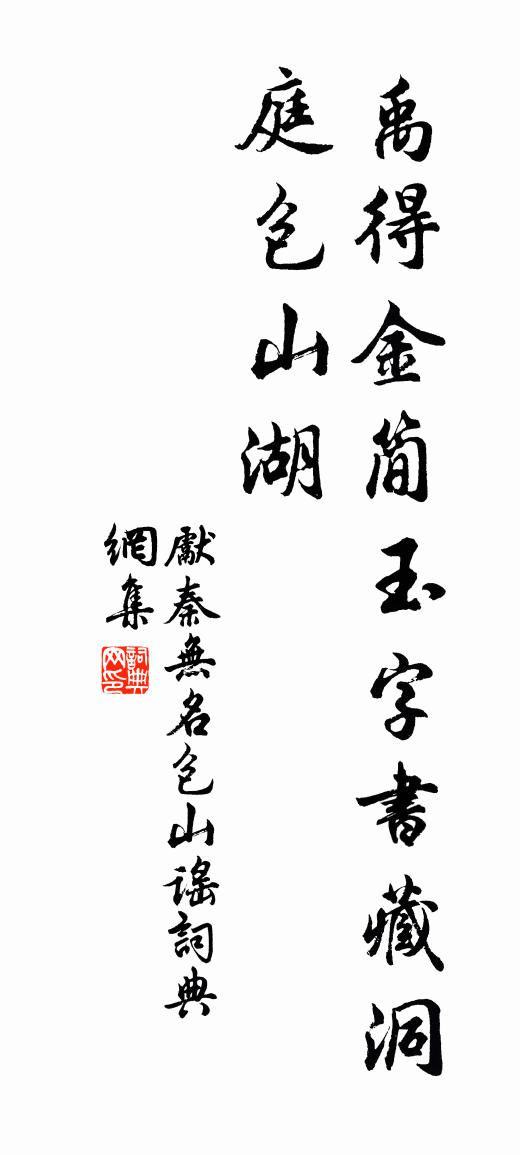 禹得金简玉字書藏洞
庭包山湖
獻秦無名包山謠詞典
網集
詞典网印